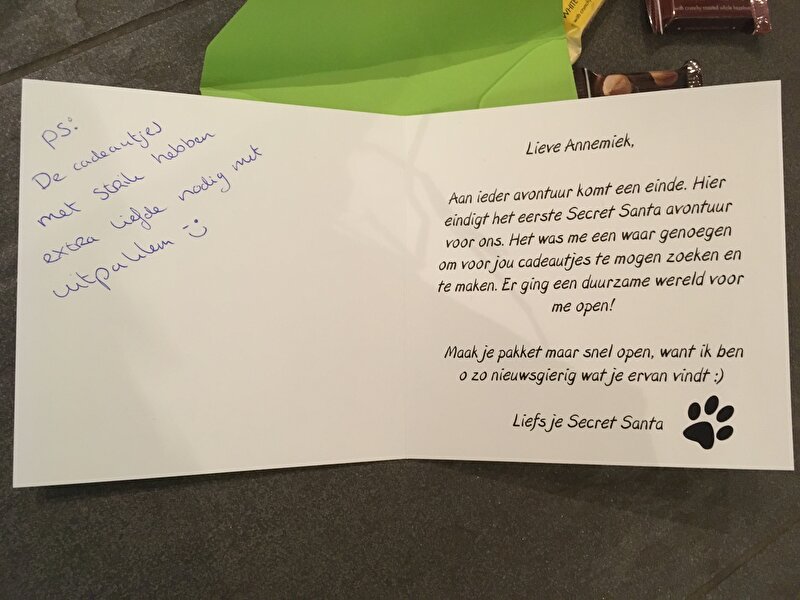 PS:
De cadeautjes
met strik hebben
extra liefde nodig met
uitpakken :)
WHITE
with crunchy roasted whole hazelnuts
Lieve Annemiek,
Aan ieder avontuur komt een einde. Hier
eindigt het eerste Secret Santa avontuur
voor ons. Het was me een waar genoegen
om voor jou cadeautjes te mogen zoeken en
te maken. Er ging een duurzame wereld voor
me open!
Maak je pakket maar snel open, want ik ben
o zo nieuwsgierig wat je ervan vindt :)
Liefs je Secret Santa